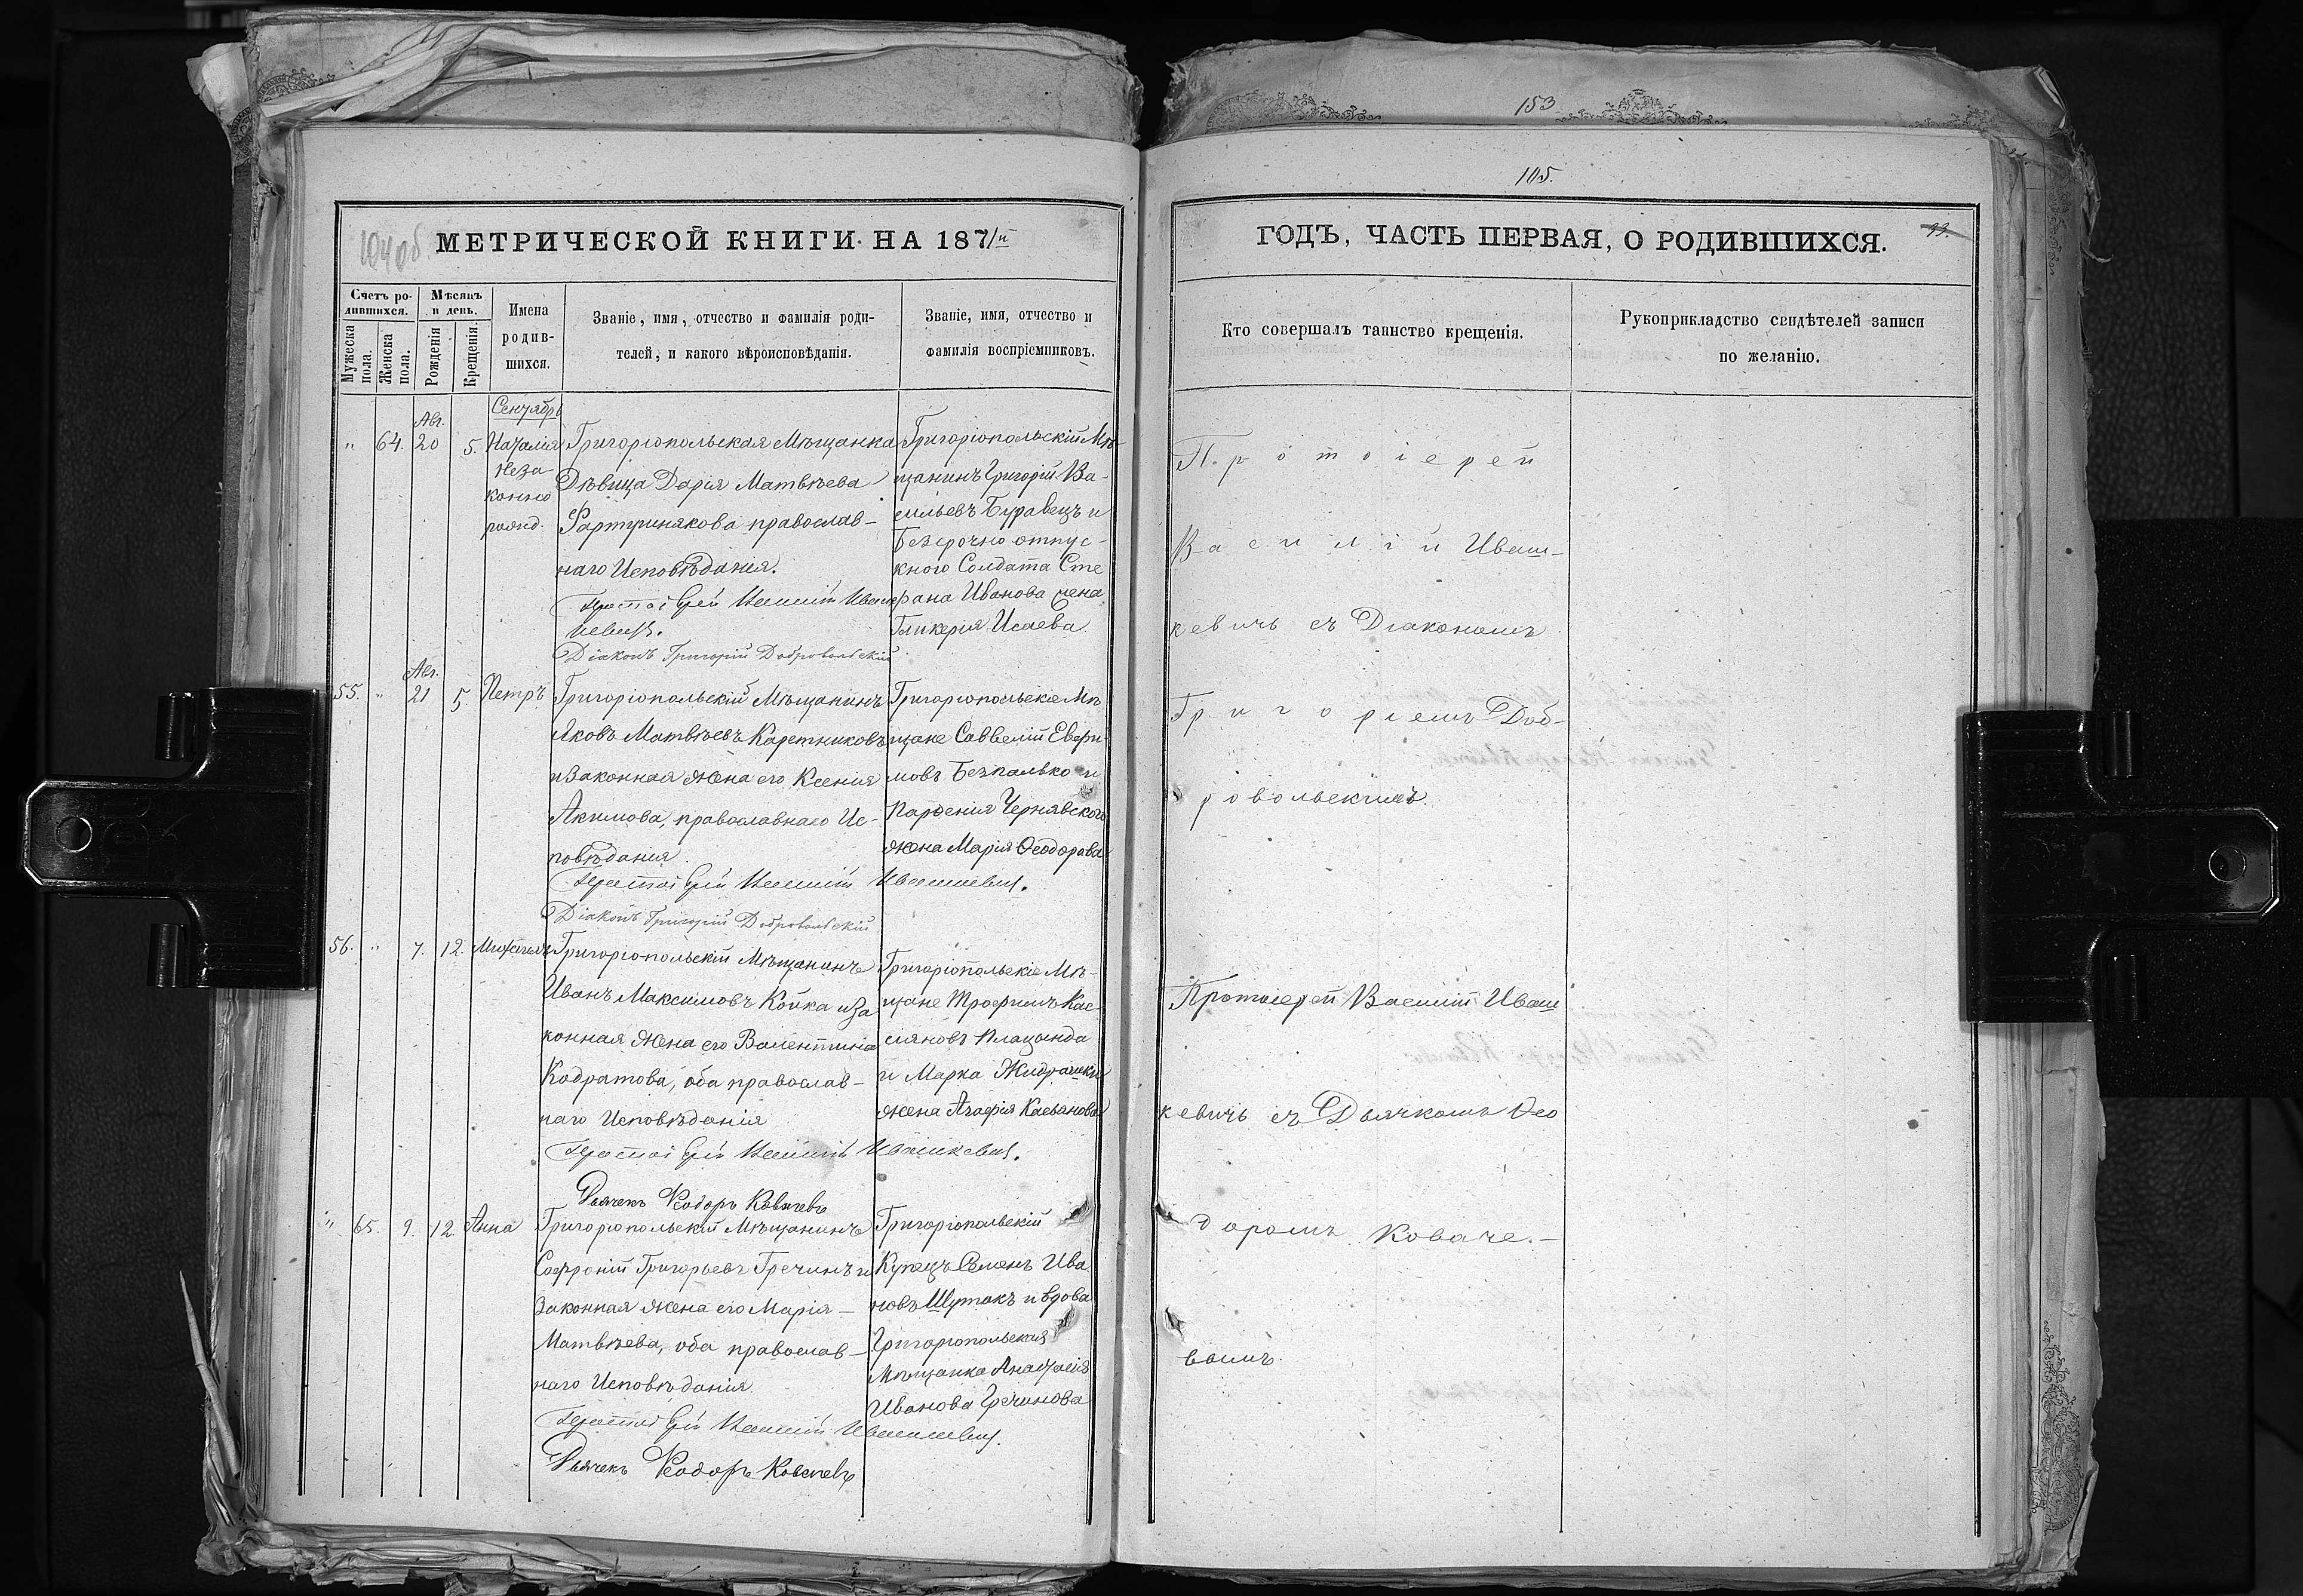 153
105.
104 об
МЕТРИЧЕСКОЙ КНИГИ НА 1871й
Счетъ ро-
дившихся.
Мужеска
пола.
Женска
пола.
Мѣсяцъ
и день.
Рожденія
Крещенія.
Имена
родив-
шихся.
Званіе, имя, отчество и фамилія роди-
телей, и какого вѣроисповѣданія.
Званіе, имя, отчество и
фамилія воспріемниковъ.
Сентябрь
Авг.
" 64. 20 5. Наталія
Неза-
конно
рожд.
Григоріопольская Мѣщанка
Дѣвица Дарія Матвѣева
православ-
наго Исповѣданія.
Протоіерей Василій Иваш-
кевичъ.
Діаконъ Григорій Добровольскій
Григоріопольскій Мѣ-
щанинъ Григорій Ва-
сильевъ Буравецъ и
Безсрочно отпус-
кного Солдата Сте
фана Иванова жена
Гликерія Исаева.
Авг.
55. " 21 5 Петръ
Григоріопольскій Мѣщанинъ
Яковъ Матвѣевъ Каретниковъ
и Законная жена его Ксенія
Акимова, православнаго Ис-
повѣданія.
Протоіерей Василій Ивашкевичъ.
Діаконъ Григорій Добровольскій
Григоріопольскіе Мѣ
щане Саввелій Евфи
мовъ Безпалько и
Парфенія Чернявского
жена Марія Ѳеодорова
56. " 7. 12. Михаилъ
Григоріопольскій Мѣщанинъ
Иванъ Максимовъ Койка и За
конная жена его Валентина
Кодратова, оба православ-
наго Исповѣданія
Протоіерей Василій Ивашкевичъ.
Дьячекъ Ѳеодоръ Ковачевъ
Григоріопольскіе Мѣ-
щане Трофимъ Кас
сіяновъ Плацында
и Марка
жена Агафія Касьянова
" 65. 9. 12. Анна
Григоріопольскій Мѣщанинъ
Софроній Григорьевъ Гречинъ и
Законная жена его Марія -
Матвѣева, оба православ-
наго Исповѣданія.
Протоіерей Василій Ивашкевичъ.
Дьячекъ Ѳеодоръ Ковачевъ
Григоріопольскій
Купецъ Семенъ Ива
новъ Шутакъ и вдова
Григоріопольская
Мѣщанка Анастасія
Иванова Гречинова
ГОДЪ, ЧАСТЬ ПЕРВАЯ, О РОДИВШИХСЯ.
Кто совершалъ таинство крещенія.
Рукоприкладство свидѣтелей записи
по желанію.
Протоіерей
Василій Иваш-
кевичъ съ Діакономъ
Григоріемъ Доб-
ровольскимъ.
Протоіерей Василій Иваш
кевичъ съ Дьячкомъ Ѳео
доромъ Коваче-
вымъ.